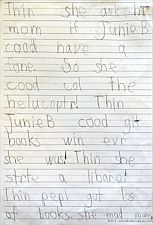 Thin she ask hr
mom if Junie B
coad have a
fone. So she
cood col the
helucoptr! Thin
Junie B coad git
books win evr
she was! Thin she
strte a libare!
Thin pepl got los
of books. she mad mane